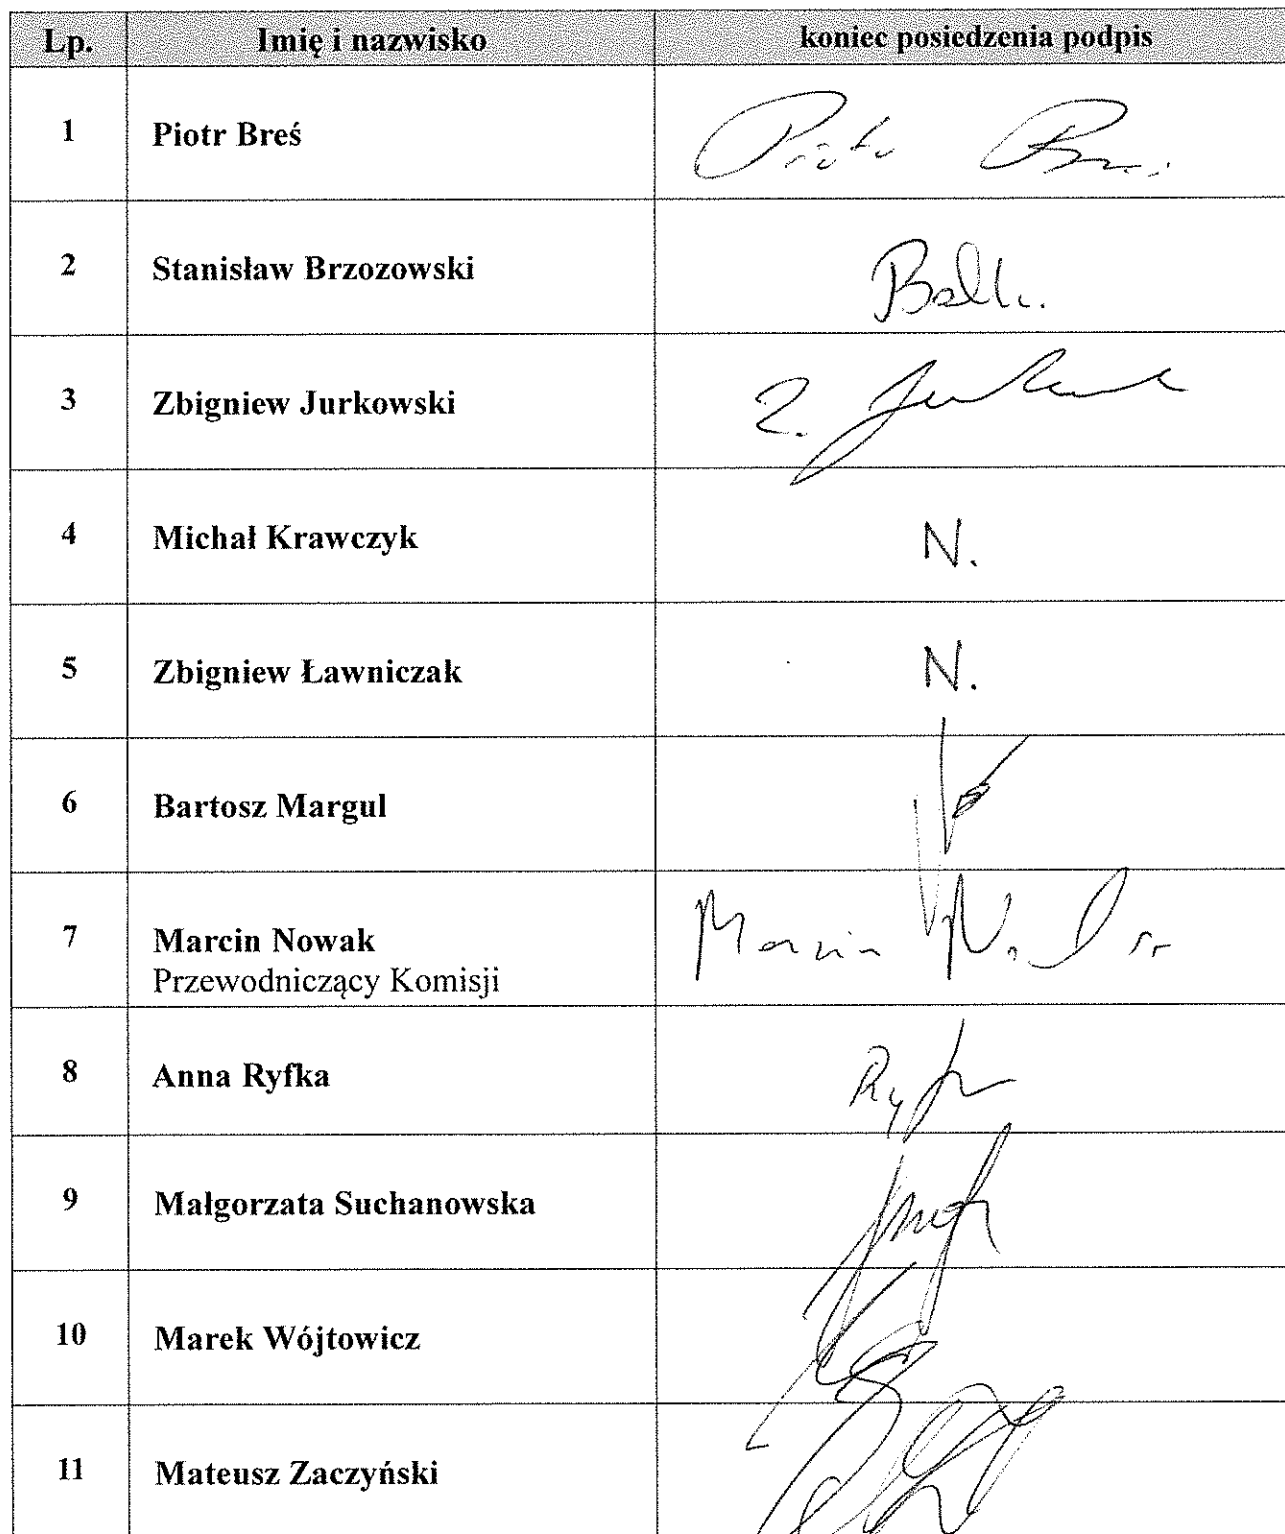 Lp. Imię i nazwisko koniec posiedzenia podpis
1 Piotr Breś Piotr
2 Stanisław Brzozowski
3 Zbigniew Jurkowski Z.
4 Michał Krawczyk N.
5 Zbigniew Ławniczak N.
6 Bartosz Margul
7 Marcin Nowak Marcin
Przewodniczący Komisji
8 Anna Ryfka
9 Małgorzata Suchanowska
10 Marek Wójtowicz
11 Mateusz Zaczyński